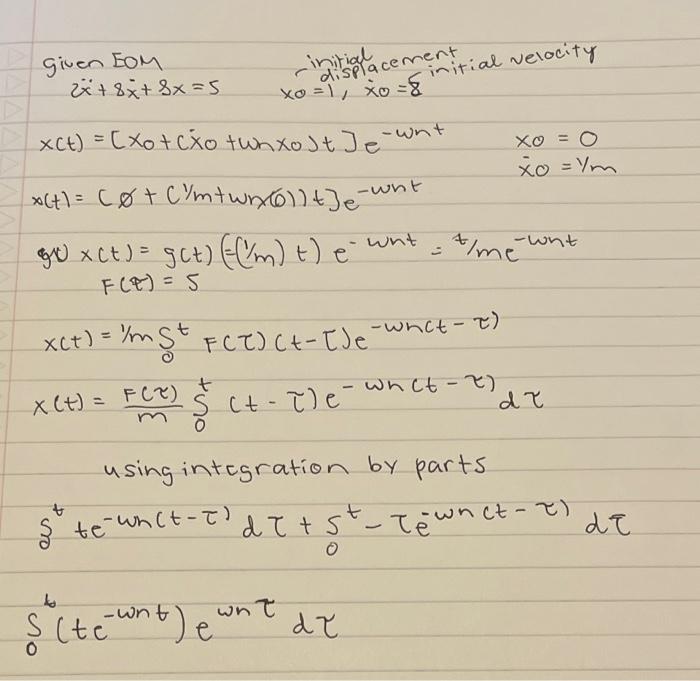 given EOM
initial displacement
initial velocity
2ẍ + 8ẋ + 8x = 5
x0 = 1, ẋ0 = 8
x(t) = [x0 + (ẋ0 + wnx0)t]e^-wnt
x0 = 0
ẋ0 = 1/m
x(t) = [0 + (1/m + wn(0))t]e^-wnt
x(t) = g(t) = (1/m) t) e^-wnt = t/m e^-wnt
F(t) = 5
x(t) = 1/m ∫0^t F(τ)(t-τ)e^-wn(t-τ)
x(t) = F(τ)/m ∫0^t (t-τ)e^-wn(t-τ) dτ
using integration by parts
∫0^t te^-wn(t-τ) dτ + ∫0^t -τe^-wn(t-τ) dτ
∫0^t (te^-wnt)e^wnτ dτ